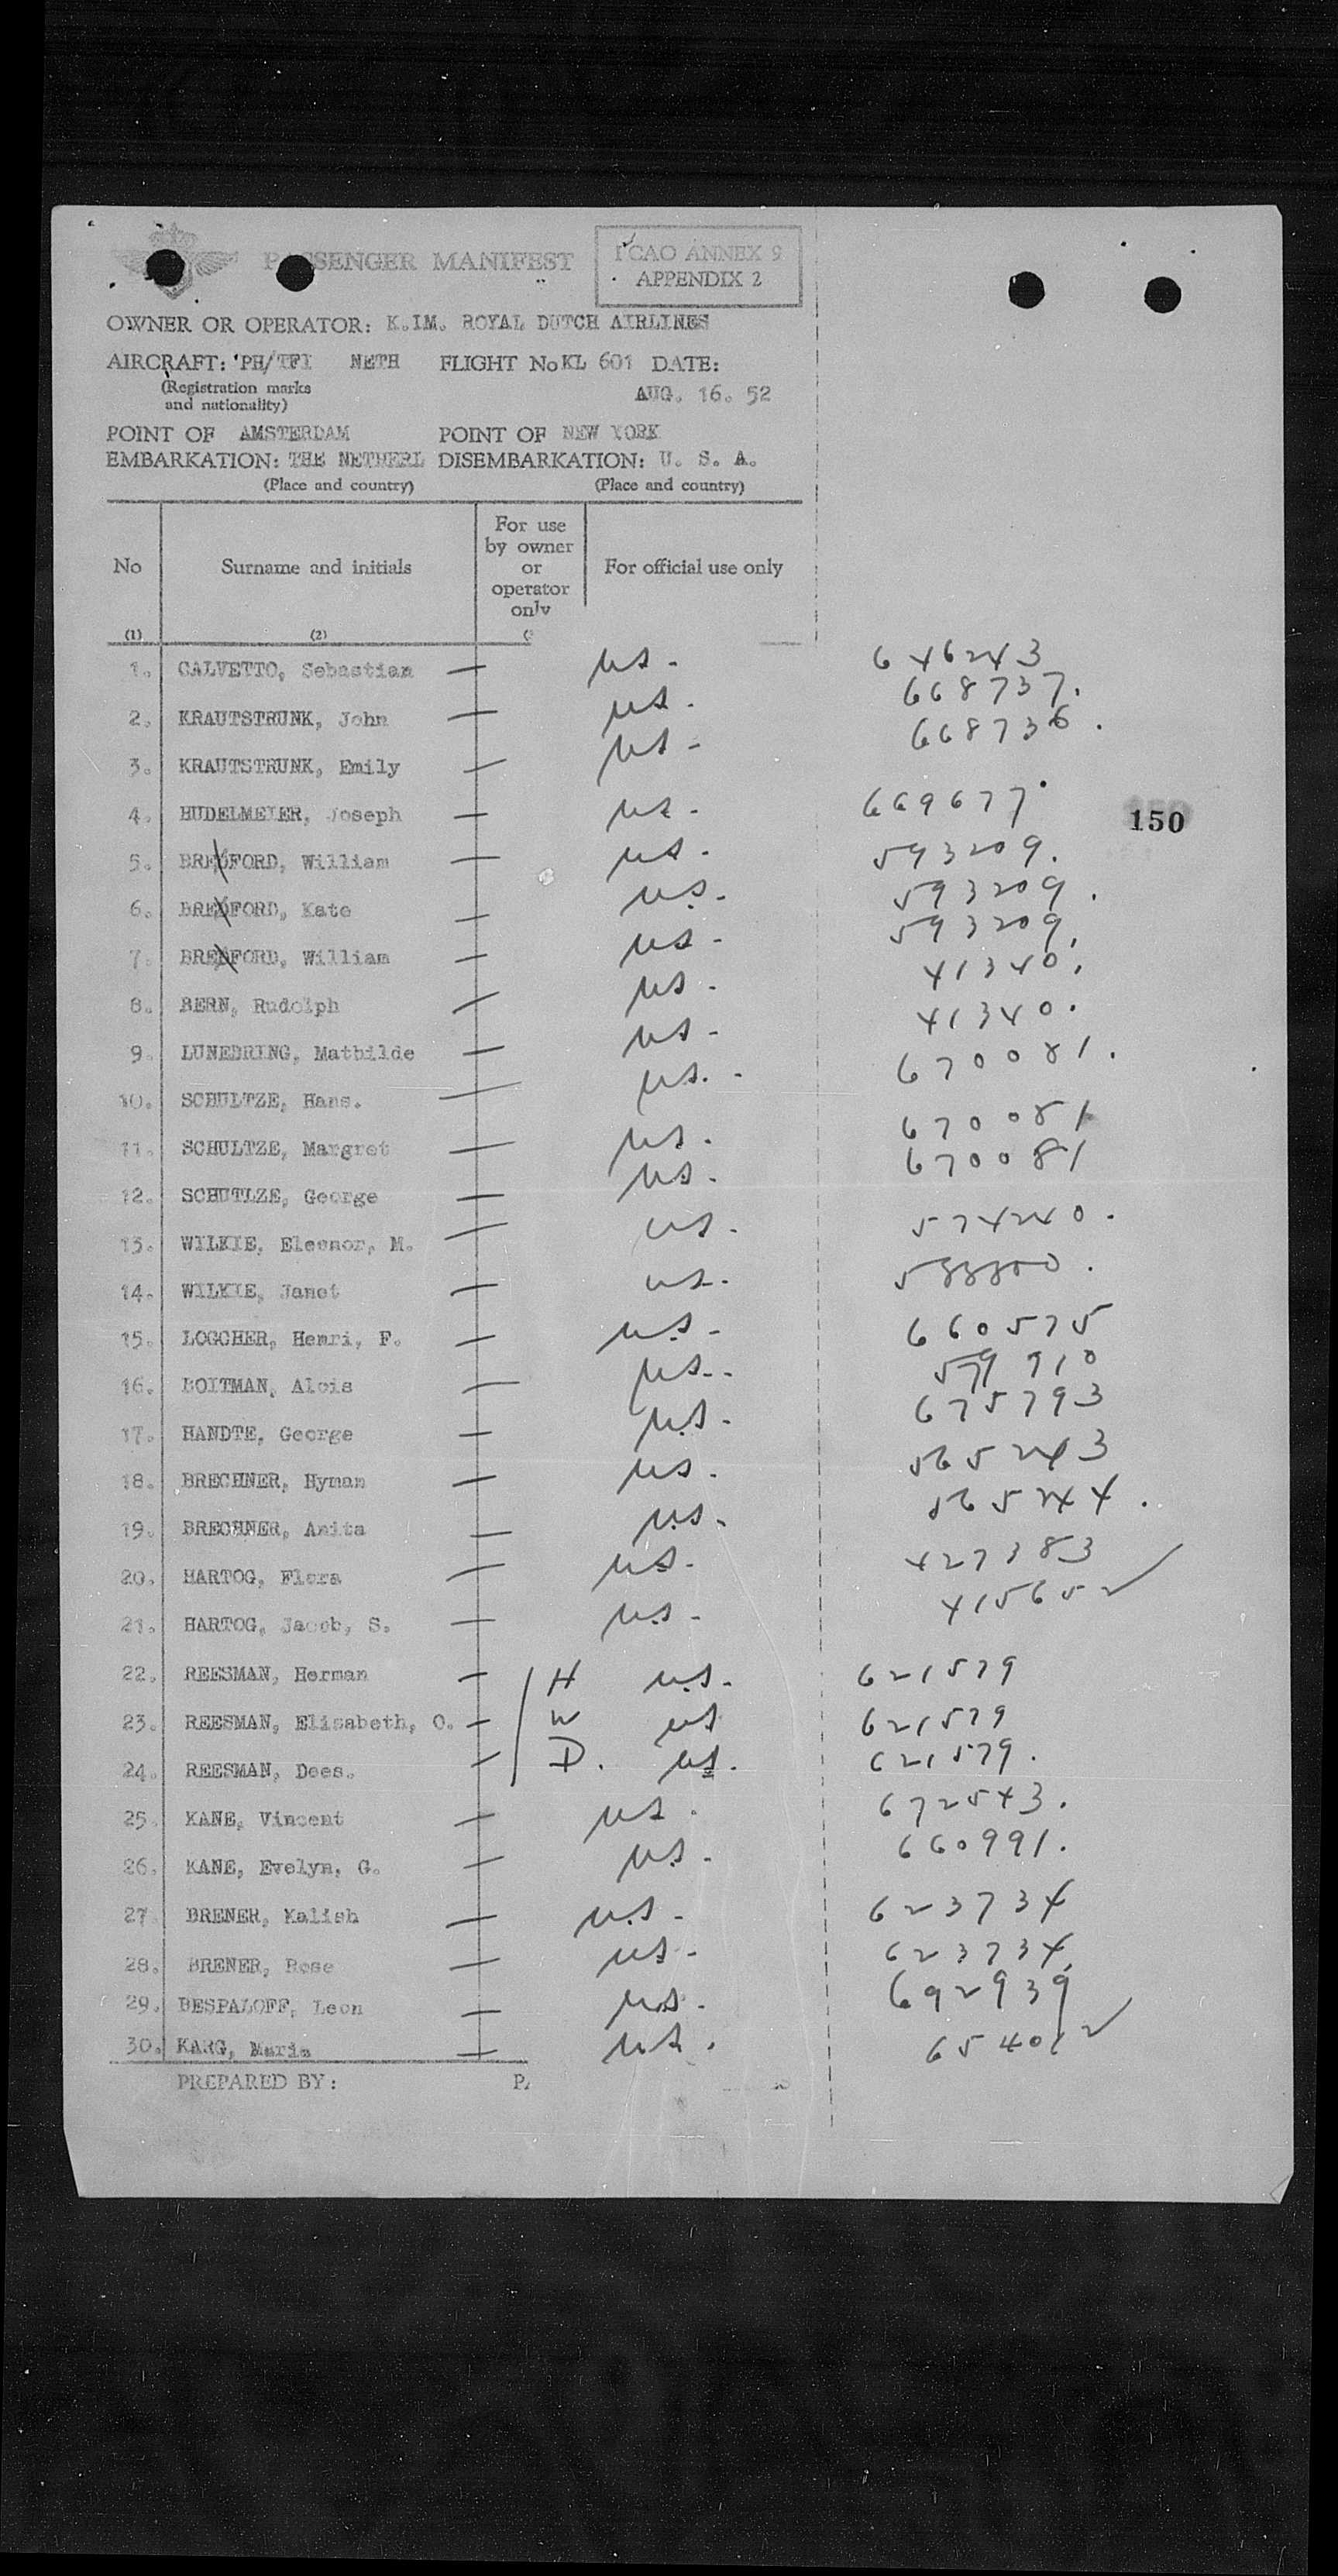 PASSENGER MANIFEST
ICAO ANNEX 9
APPENDIX 2
OWNER OR OPERATOR: K.LM. ROYAL DUTCH AIRLINES
AIRCRAFT: PH/TFI NETH FLIGHT No KL 601 DATE:
(Registration marks
and nationality)
AUG. 16. 52
POINT OF AMSTERDAM POINT OF NEW YORK
EMBARKATION: THE NETHERL DISEMBARKATION: U. S. A.
(Place and country) (Place and country)
No Surname and initials For use by owner or operator only For official use only
(1) (2)
1. CALVETTO, Sebastian — us. 646243
2. KRAUTSTRUNK, John — us. 668737.
3. KRAUTSTRUNK, Emily — us. 668736.
4. HUDELMEIER, Joseph — us. 669677
150
5. BREDFORD, William — us. 593209.
6. BREDFORD, Kate — us. 593209.
7. BREDFORD, William — us. 593209.
8. BERN, Rudolph — us. 41340.
9. LUNEDRING, Mathilde — us. 41340.
10. SCHULTZE, Hans. — us. 670081.
11. SCHULTZE, Margret — us. 670081
12. SCHUTLZE, George — us. 670081
13. WILKIE, Eleenor, M. — us. 574240.
14. WILKIE, Janet — us.
15. LOGCHER, Henri, F. — us. 660575
16. BOITMAN, Alois — us. 579910
17. HANDTE, George — us. 675793
18. BRECHNER, Hyman — us. 565243
19. BRECHNER, Anita — us. 565244.
20. HARTOG, Flora — us. 427383
21. HARTOG, Jacob, S. — us. 415652
22. REESMAN, Herman — H us. 621579
23. REESMAN, Elisabeth, O. — W us 621579
24. REESMAN, Dees. — D. us. 621579.
25. KANE, Vincent — us. 672543.
26. KANE, Evelyn, G. — us. 660991.
27 BRENER, Kalish — us. 623734
28. BRENER, Rose — us. 623734
29. BESPALOFF, Leon — us. 692939
30. KARG, Maria — us. 65401
PREPARED BY: PA